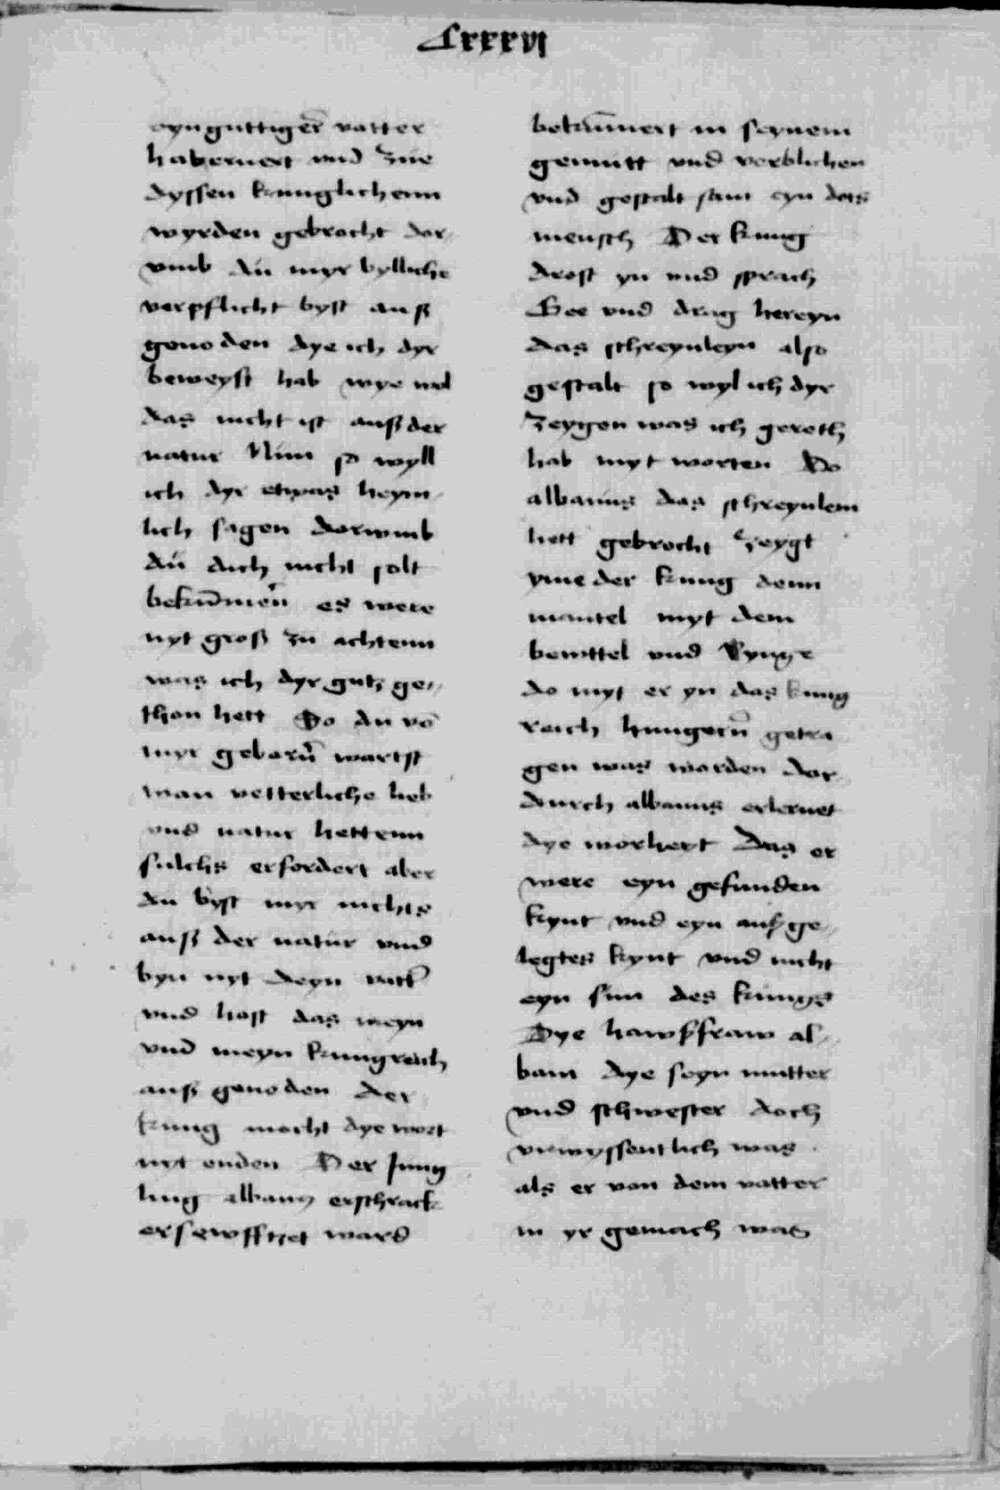 Lxxxvi
eyn guttiger̄ vatter
habernert vnd zue
dyssen kunglichenn
wyrden gebrocht dor
vmb du myr bylliche
verpflicht byst auß
genoden dye ich dyr
beweyst hab wye wol
das nicht ist auß der
natur Nun so wyll
ich dyr etwas heym
lich sagen dorwmb
du dich nicht solt
bekūmern es were
nyt groß zu achtenn
was ich dyr gutz ge„
thon hett So du vō
myr geborn̄ wartst
wan vetterliche lieb
vnd natur hettenn
sulchs erfordert aber
du byst myr nichts
auß der natur vnd
byn nyt deyn vatt̄
vnd host das meyn
vnd meyn kungreich
auß genoden Der
kung mocht dye wort
nyt enden Der Jung
ling albanus erschrack
ersewfftzet ward
bekūmert in seynem
gemutt vnd verblichen
vnd gestalt sam eyn dots
mensch Der kung
drost yn vnd sprach
Gee vnd drag hereyn
das schreynleyn also
gestalt so wyl ich dyr
zeygen was ich gereth
hab myt worten Do
albanus das schreynlein
hett gebrocht zeygt
yme der kung denn
mantel myt dem
bewttel vnd Rynge
do myt er yn das kung
reich hungern̄ getra
gen was worden dor
durch albanus erlernet
dye worheyt Das er
were eyn gefunden
kynt vnd eyn auß ge„
legtes kynt vnd nicht
eyn sun des kungs
Dye hawßfraw al„
bani dye seyn mutter
vnd schwester doch
vnwyssentlich was
als er von dem vatter
in yr gemach was